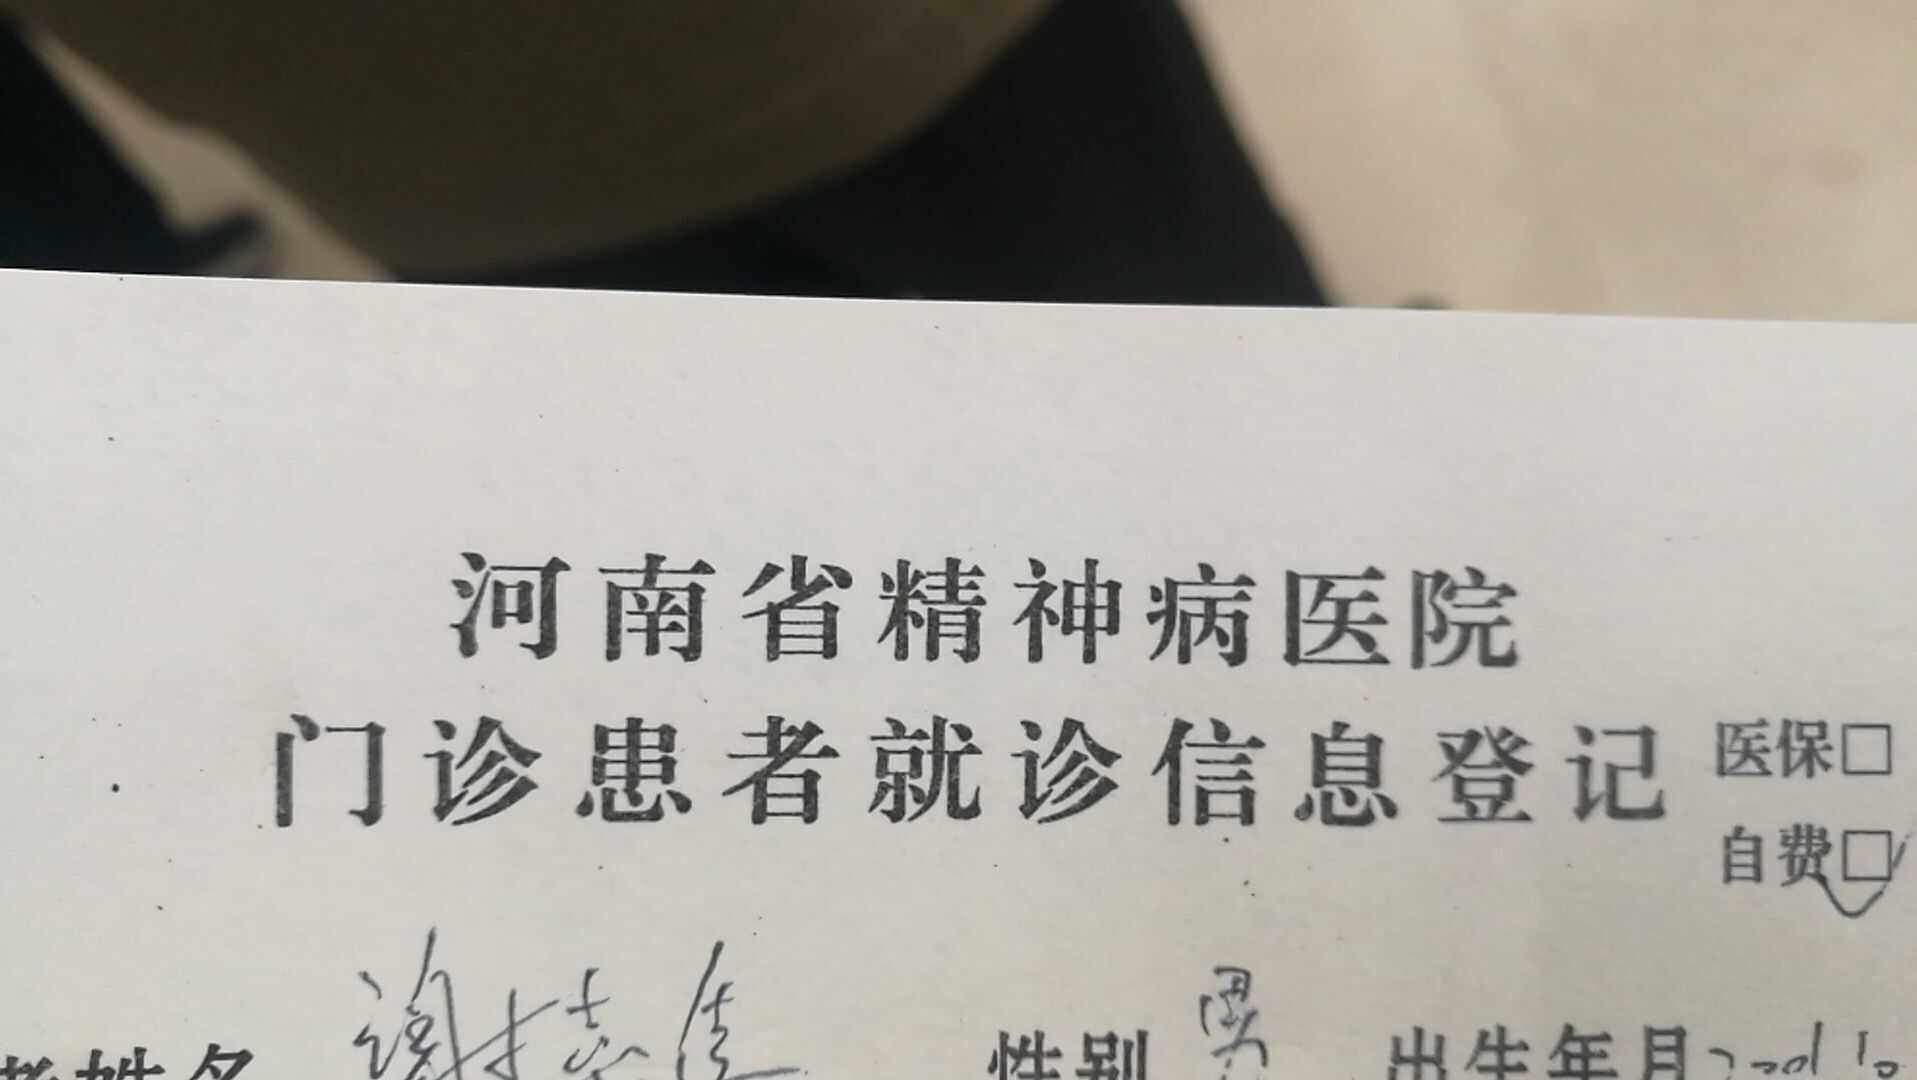 河南省精神病医院
门诊患者就诊信息登记
医保□
自费□
姓名 谢志佳 性别 男 出生年月 2001 10